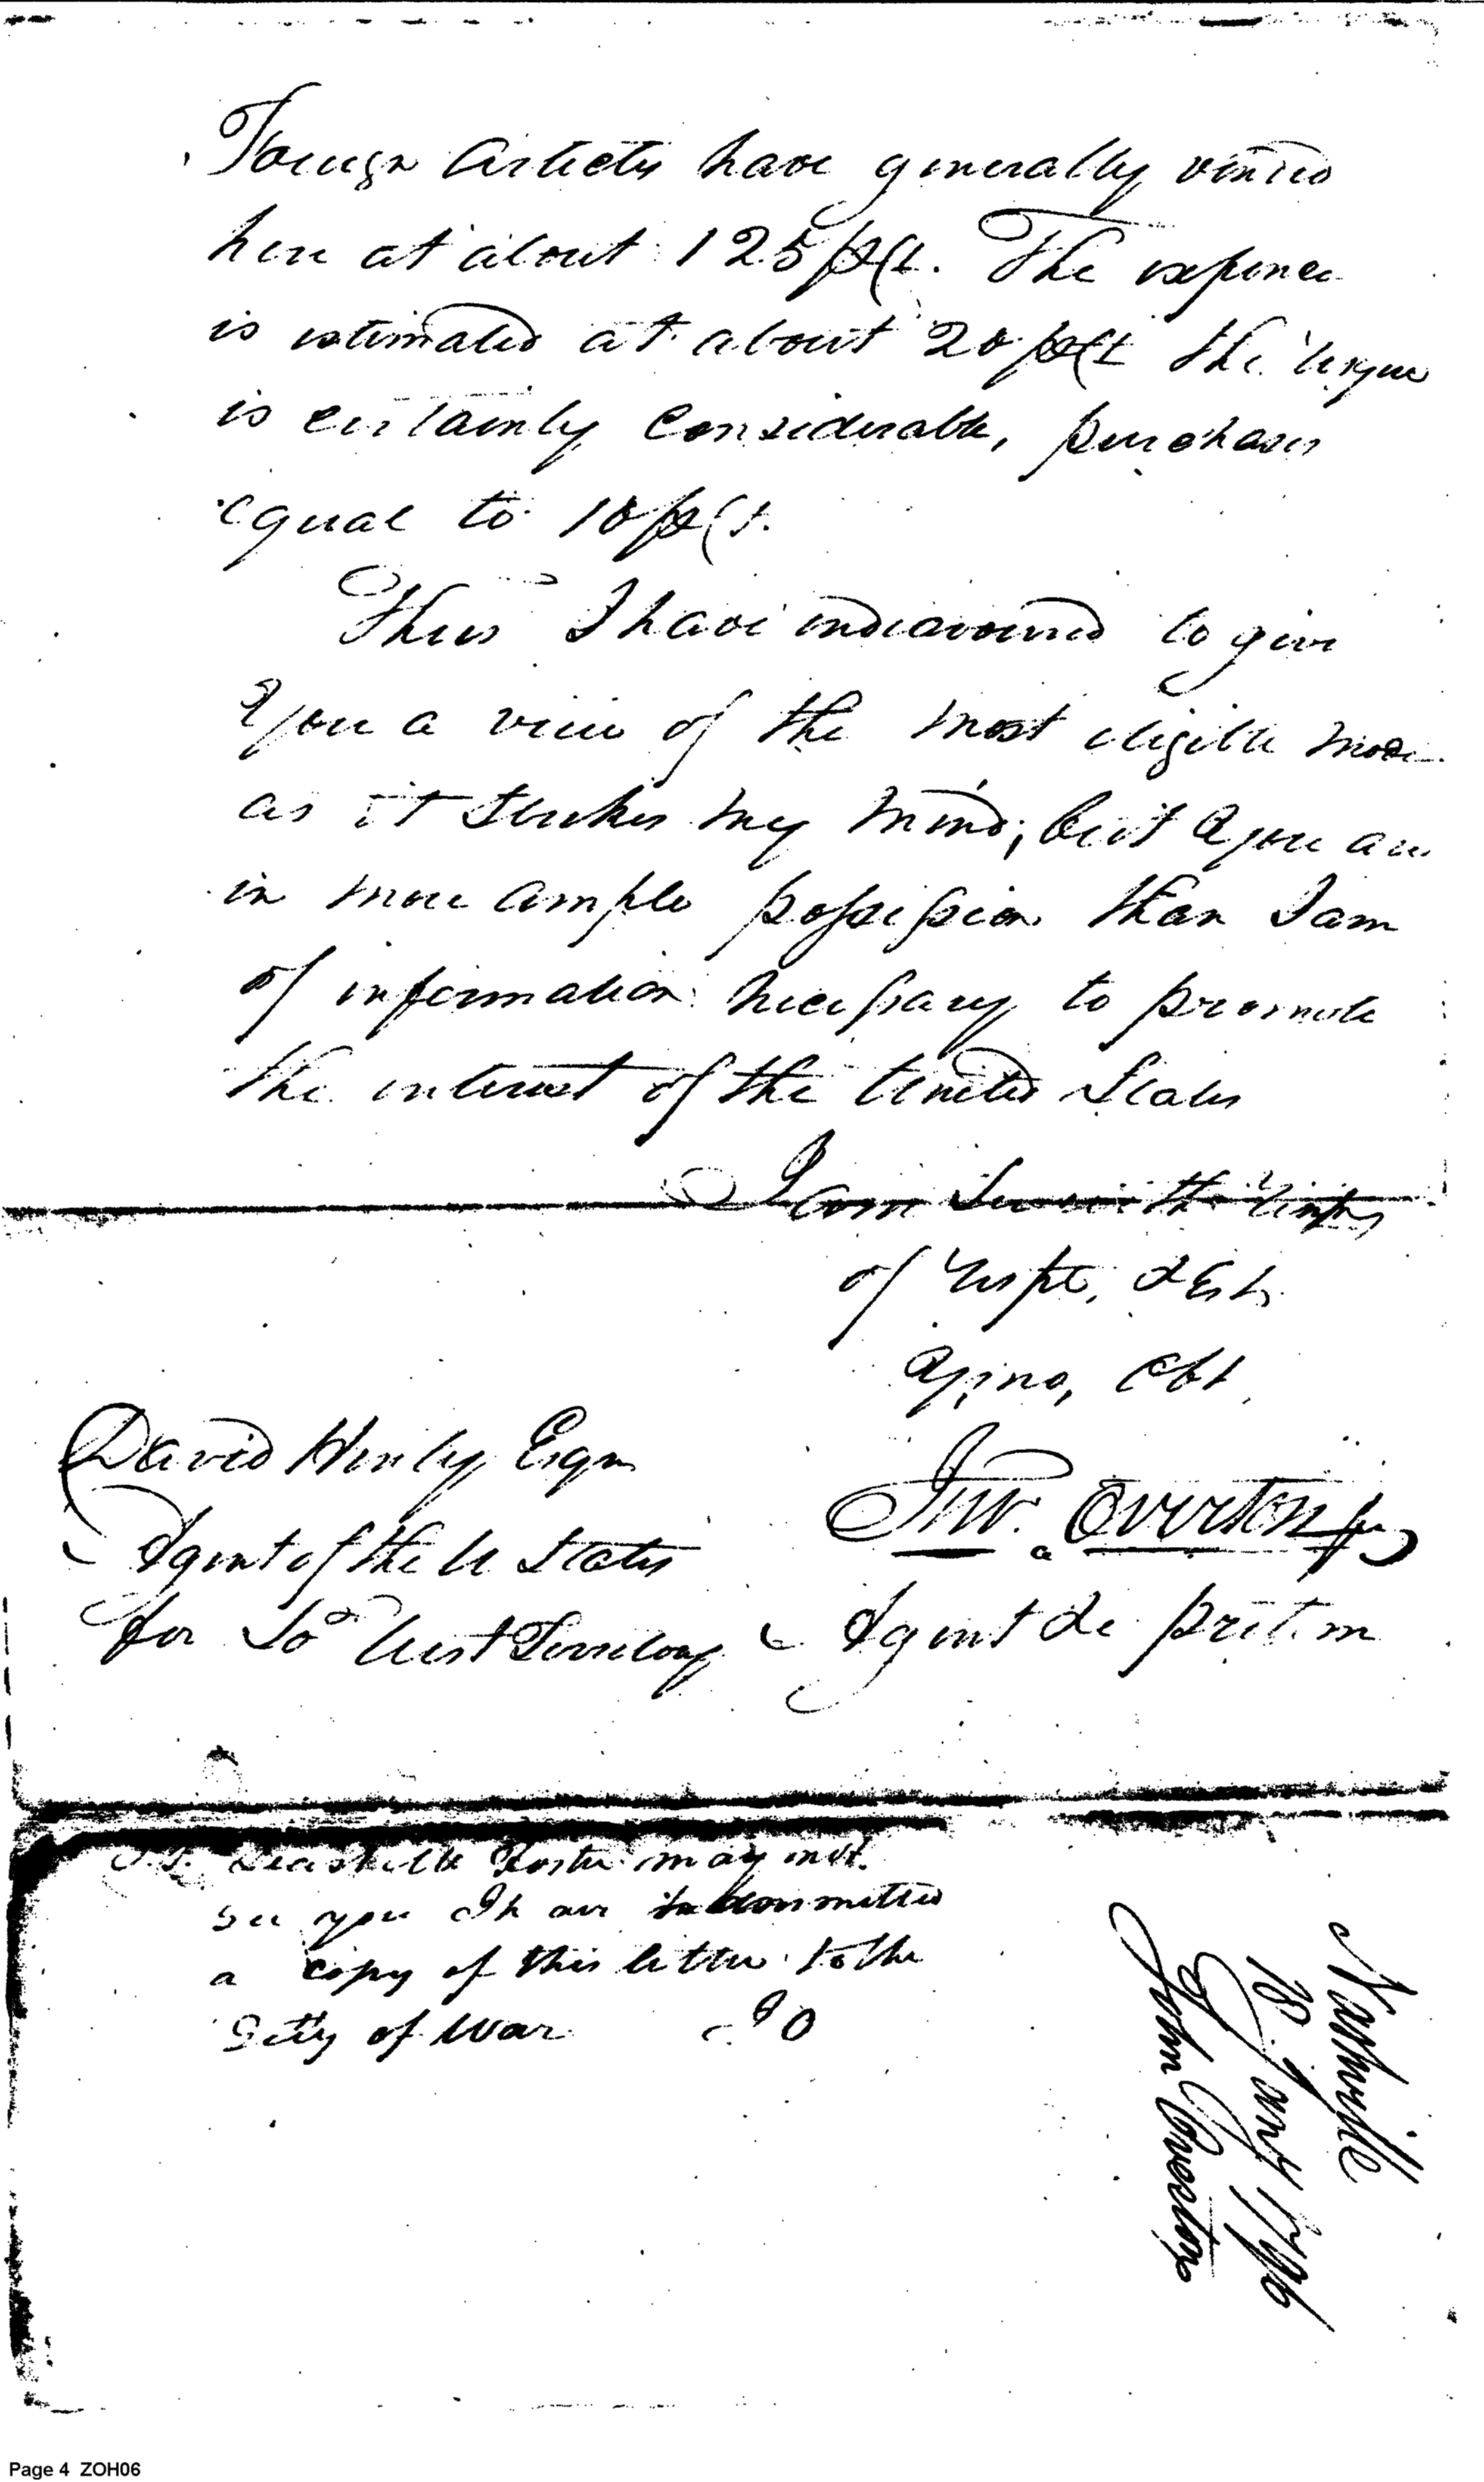 Foreign Articles have generally vended
here at about 125 pCt. The expence
is estimated at about 20 pCt the
is certainly considerable, purchases
equal to 10 pCt.
Thus I have endeavoured to give
you a view of the most eligible mode
as it strikes my mind; but you are
in more ample possession than I am
of information necessary to promote
the interest of the United States
I am Sir with
of respt. & Est.
Obt.
David Henly Esqr
Jno. Overton
Agent of the U States
for So West Territory
Agent
P.S. Least the Foster may not
see you I h ave transmitted
a copy of this letter to the
Secty of War J O
Nashville
18 Jany 1796
John Overton
Page 4 ZOH06